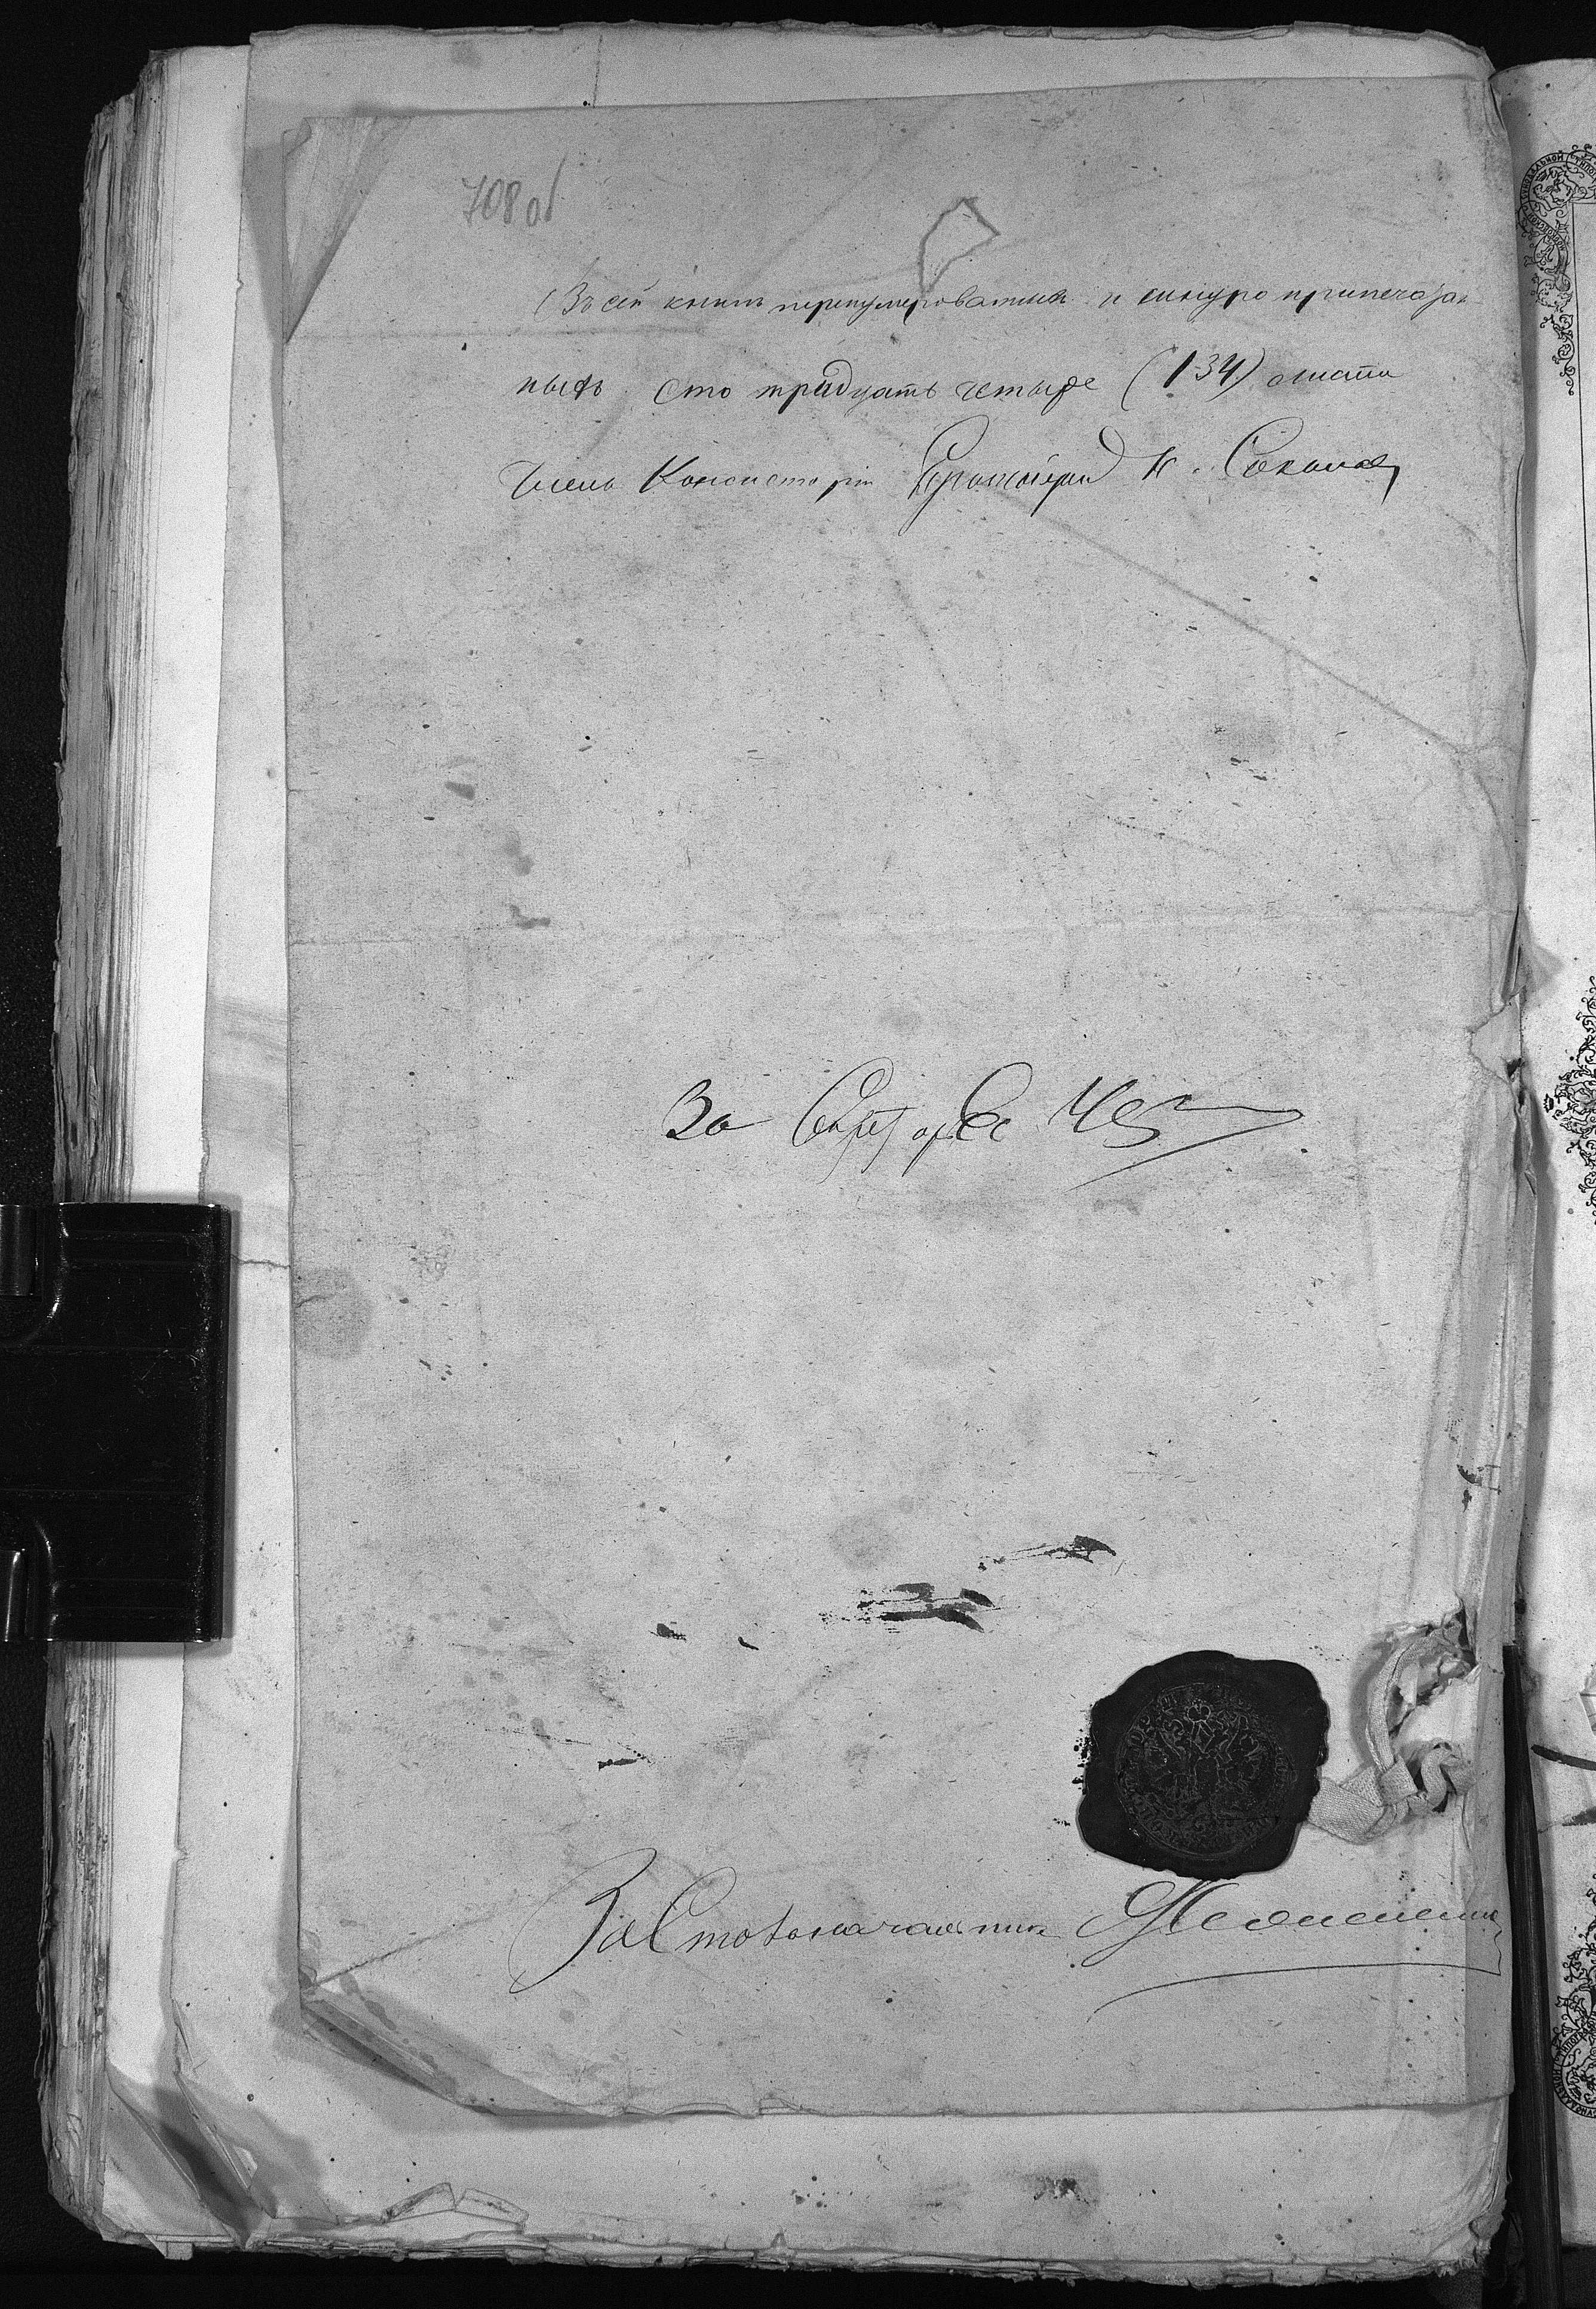 708 об
Въ сей книгѣ перенумерованныхъ и шнуро припечатан-
ныхъ сто тридцать четыре (134) листа
Членъ Консисторіи Протоіерей Н. Соколовъ
За Секретаря
За Столоначальника